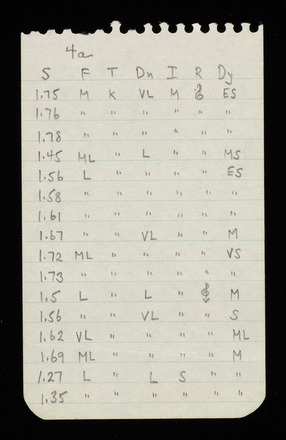 4a
S F T Dn I R Dy
1.75 M K VL M 𝄞 ES
1.76 " " " " " "
1.78 " " " " " "
1.45 ML " L " " MS
1.56 L " " " " ES
1.58 " " " " " "
1.61 " " " " " "
1.67 " " VL " " M
1.72 ML " " " " VS
1.73 " " " " " "
1.5 L " L " 𝄞 M
1.56 " " VL " " S
1.62 VL " " " " ML
1.69 ML " " " " M
1.27 L " L S " "
1.35 " " " " " "